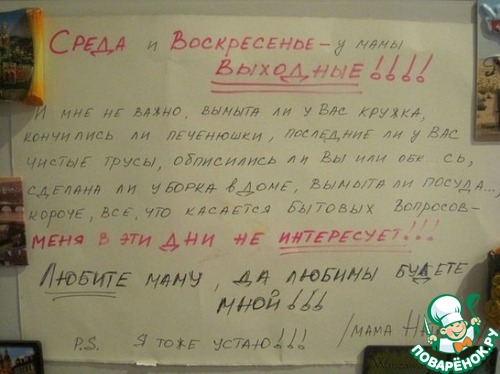 Среда и Воскресенье – у мамы
Выходные!!!!
И мне не важно, вымыта ли у Вас кружка,
кончились ли печенюшки, последние ли у Вас
чистые трусы, обписились ли Вы или обк...сь,
сделана ли уборка в доме, вымыта ли посуда...,
короче, все, что касается бытовых вопросов–
меня в эти дни не интересует!!!
Любите маму, да любимы будете
мной!!!
P.S. Я тоже устаю!!! /мама
Поварёнок.ру